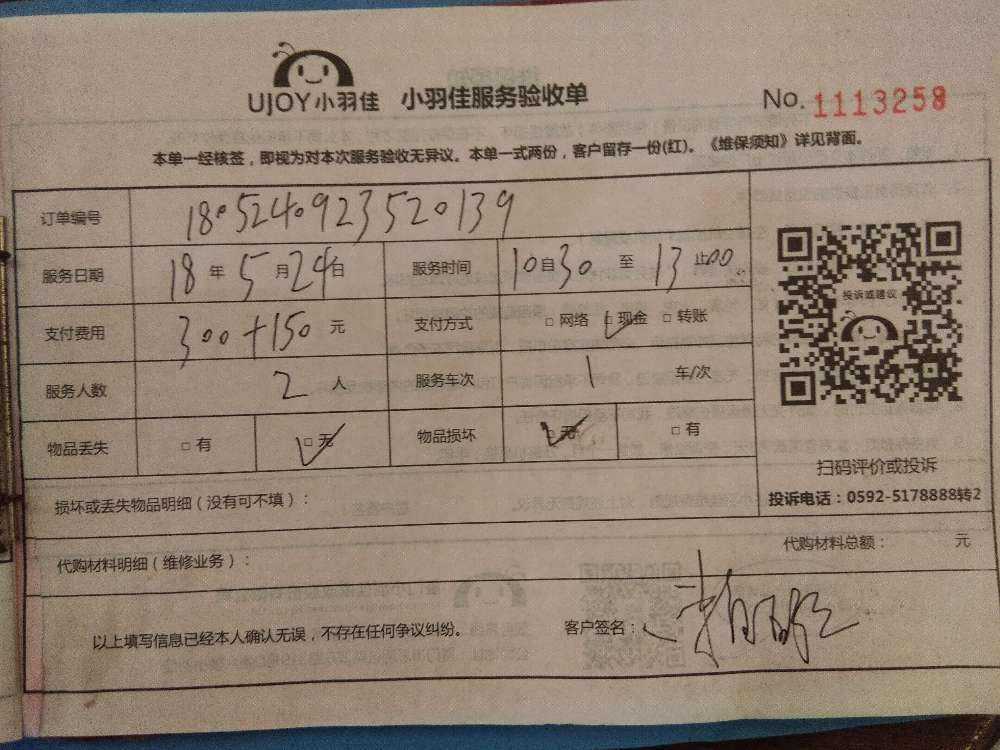 UJOY小羽佳 小羽佳服务验收单 No. 1113258
本单一经核签，即视为对本次服务验收无异议。本单一式两份，客户留存一份(红)。《维保须知》详见背面。
订单编号 180524092352​0139
服务日期 18年5月24日 服务时间 10自30至13止00
支付费用 300+150元 支付方式 □网络 □现金 □转账
服务人数 2人 服务车次 1 车/次
物品丢失 □有 □无 物品损坏 □无 □有
投诉或建议
扫码评价或投诉
投诉电话：0592-5178888转2
损坏或丢失物品明细（没有可不填）：
代购材料明细（维修业务）： 代购材料总额： 元
以上填写信息已经本人确认无误，不存在任何争议纠纷。 客户签名：